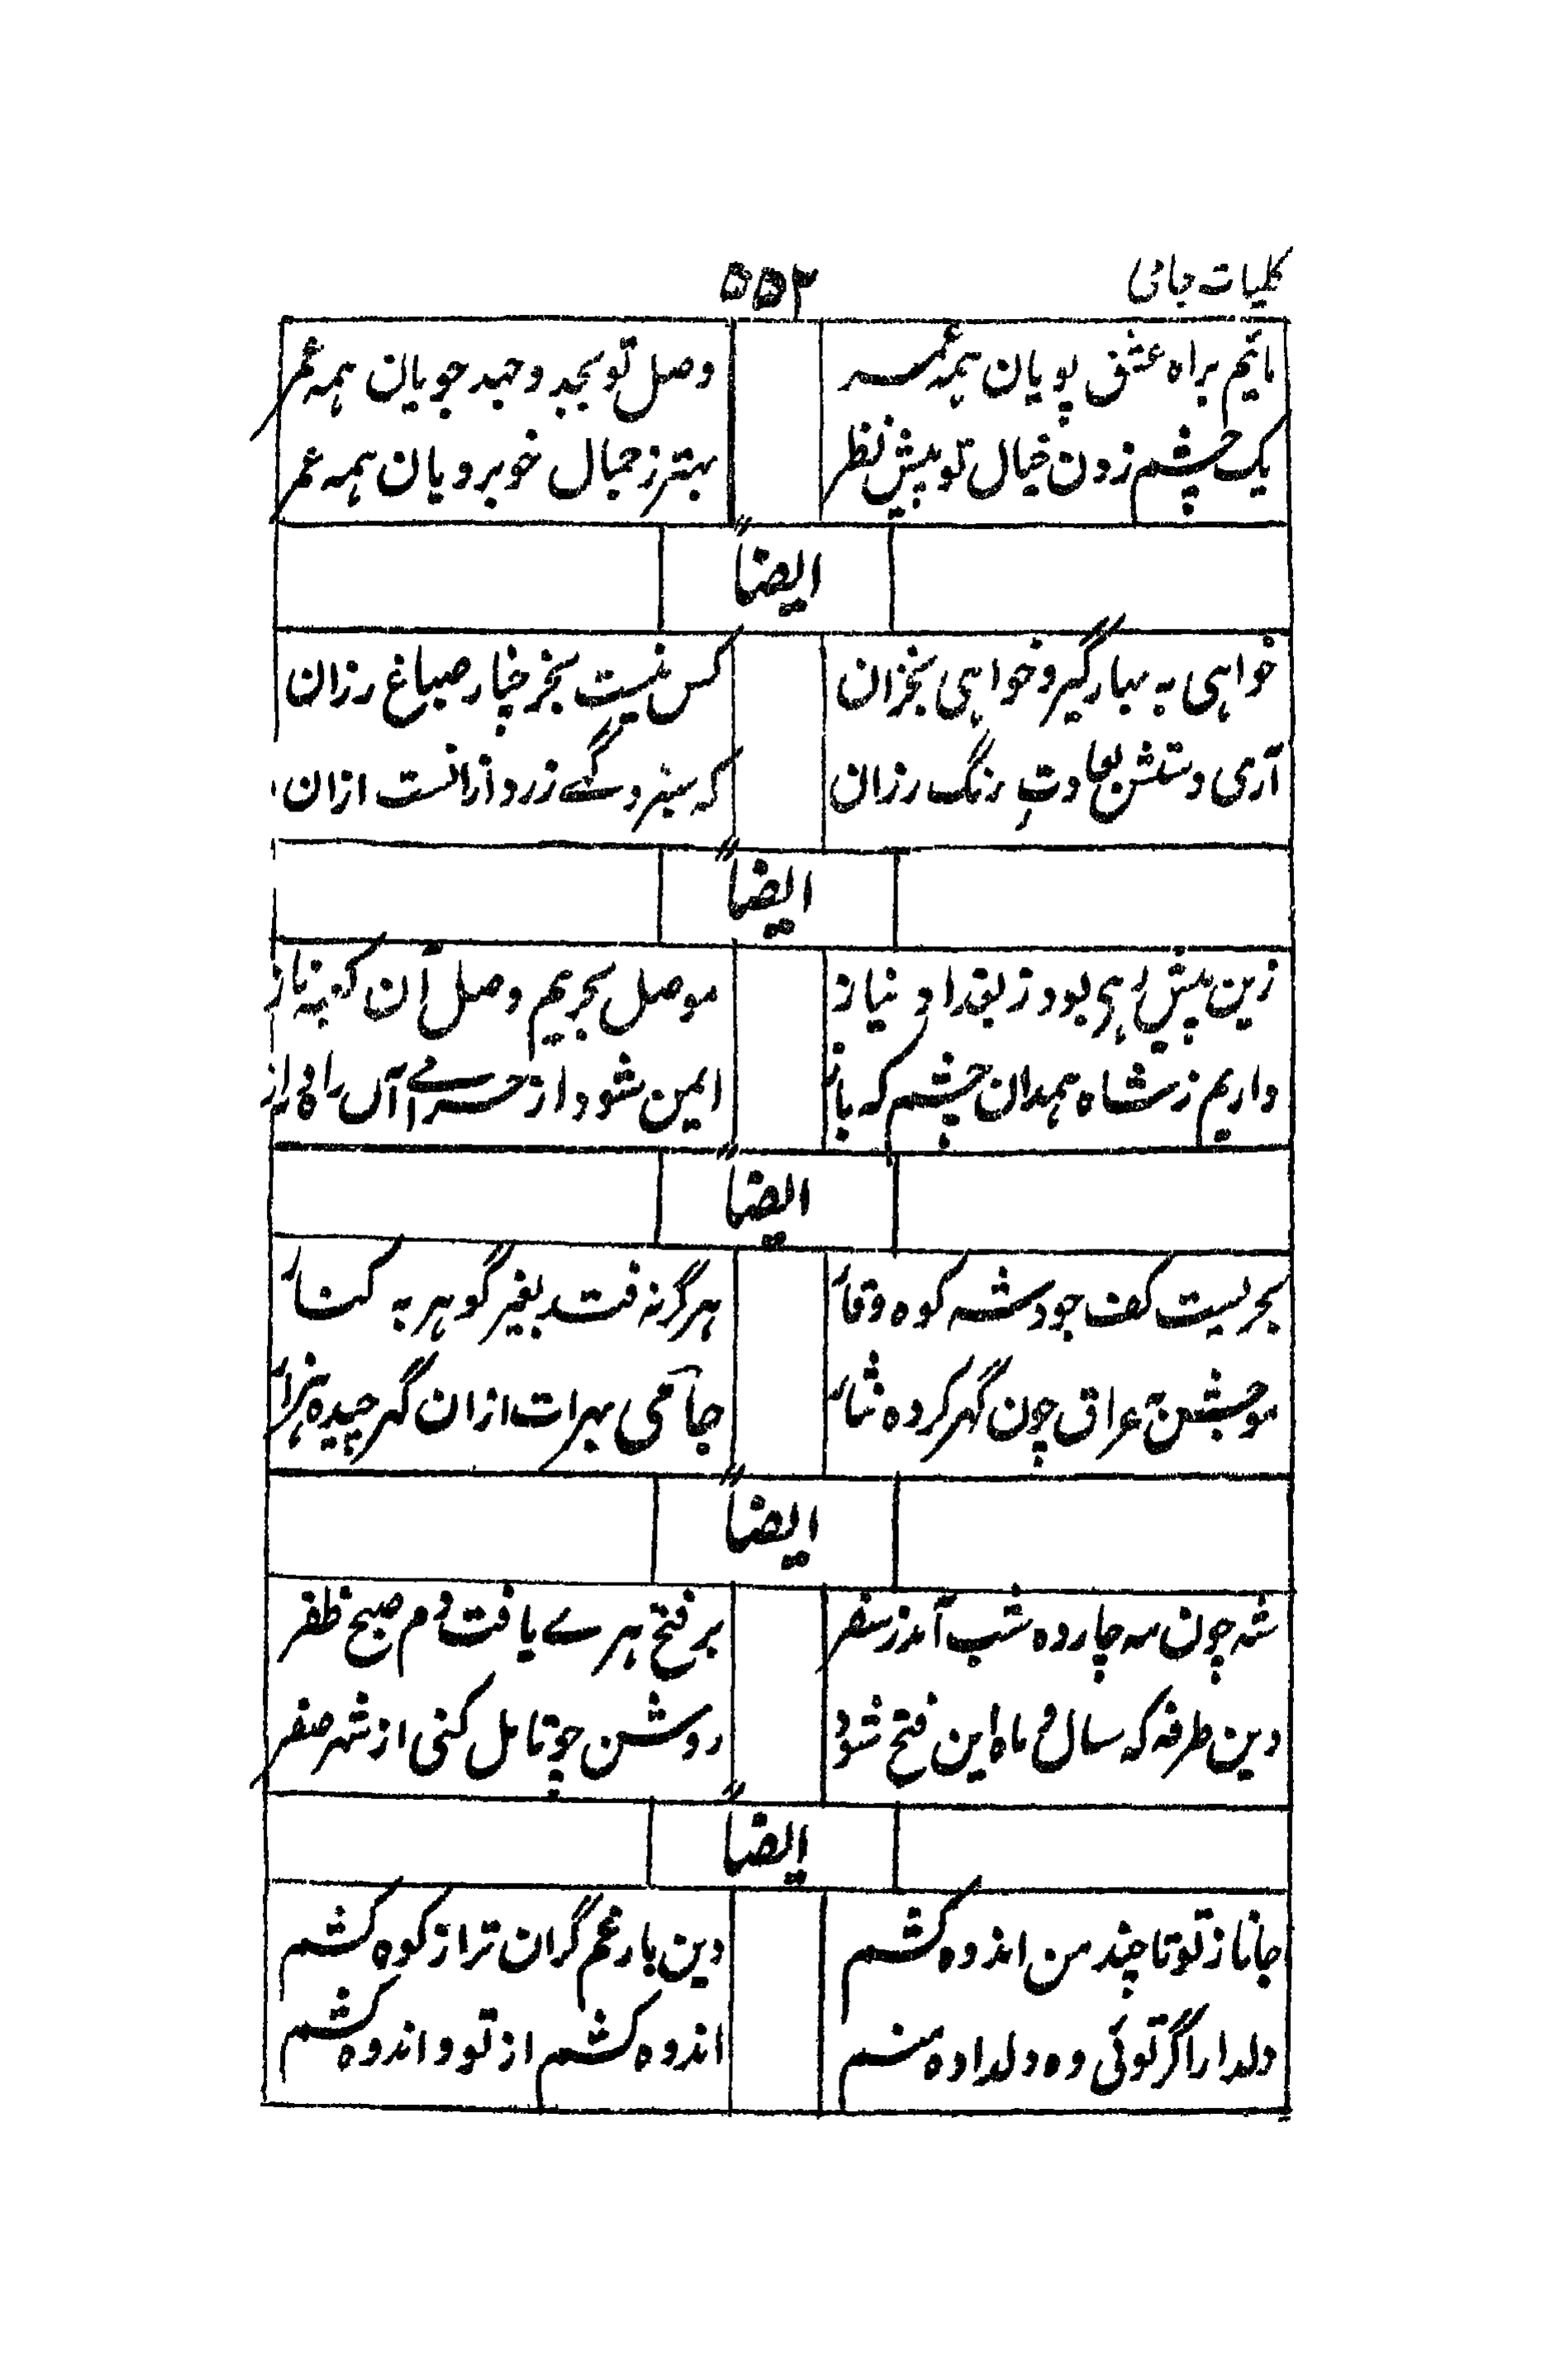 کلیات جامی
۵۵۲
مائیم براه عشق پویان ہمہ عمر
وصل تو بجد و جہد جویان ہمہ عمر
یک چشم زدن خیال تو پیش نظر
بہتر ز جمال خوبرویان ہمہ عمر
ایضاً
خواہی بہ بہار گیر و خواہی بخزان
کس نیست بجز خپار صباغ رزان
آرمی دستش بعادت رنگ رزان
کہ سبز و گہے زرد از انست ازان
ایضاً
زین پیش رہی بود ز بغداد نیاز
موصل بحریم وصل آن کعبہ ناز
داریم ز شاہ ہمدان چشم کہ باز
ایمن شود از حرامے آں راہ دراز
ایضاً
بحریست کف جود شہ کوہ وقار
ہرگز نہ فتد بغیر گوہر بہ کنار
موجش بہ عراق چون گہر کردہ نثار
جامی بہرات ازان گہر چیدہ ہزار
ایضاً
شہ چون مہ چاردہ شب آمد ز سفر
بر فتح ہرے یافت دم صبح ظفر
دین طرفہ کہ سال و ماہ این فتح شود
روشن چو تامل کنی از شہر صفر
ایضاً
جانا ز تو تا چند من اندوہ کشم
دین بار غم گران تر از کوہ کشم
دلدار اگر توئی و دلدادہ منم
اندوہ کشم از تو و اندوہ کشم